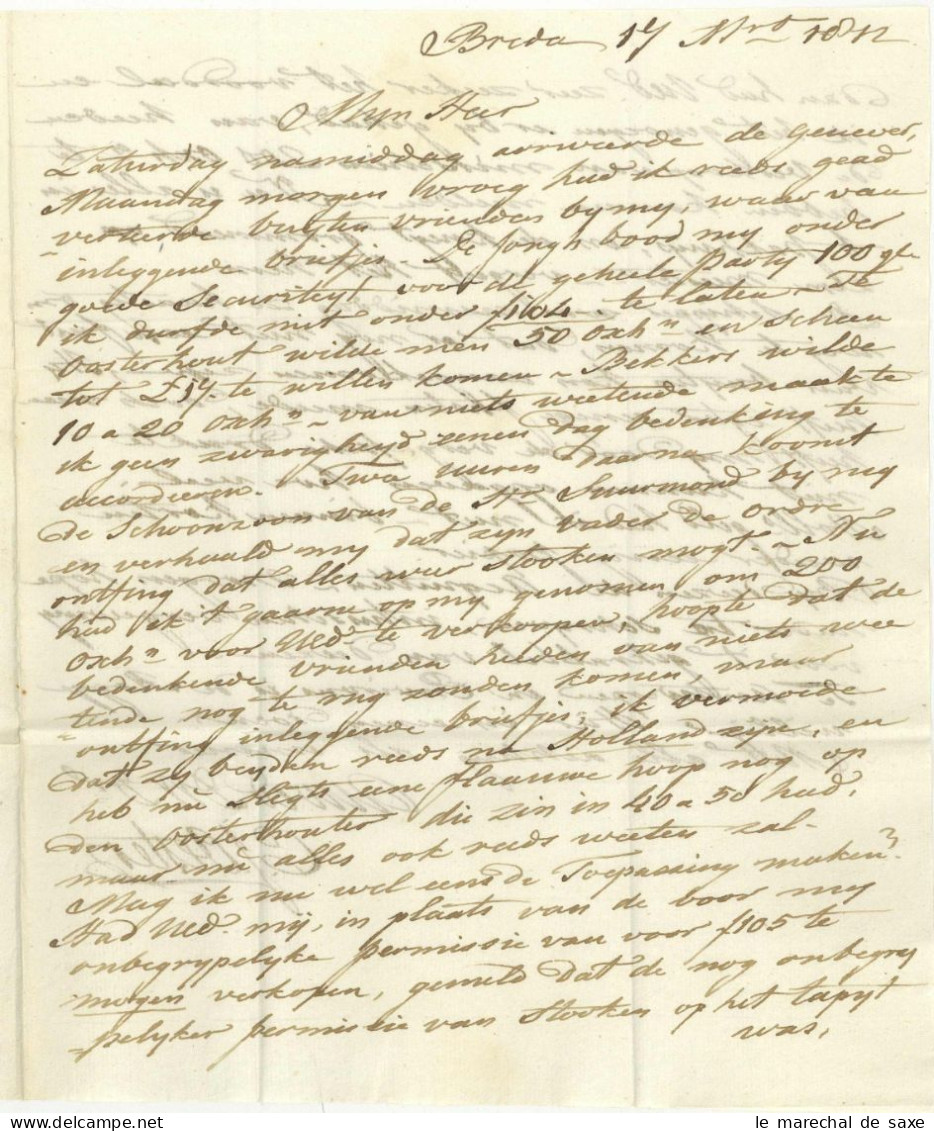 Breda 17 Mrt 1812
Mijn Heer
Zaturdag namiddag arriveerde de genever,
Maandag morgen vroeg had ik reeds gead
verteerde buyten vrienden by my, waar van
inleggende briefjes. De Jongh bood my onder
goede Securityt voor de geheele party 100 gl
ik durfde niet onder f104 - te laten - Te
Oosterhout wilde men 50 oxhn en scheen
tot £17. te willen komen - Bekkers wilde
10 a 20 oxhn - van niets weetende maakte
ik geen zwarigheyd eenen dag bedenking te
accordeeren. Twa uuren daarna koomt
de Schoonzoon van de Hr Suurmond by my
en verhaald my dat zyn vader de ordre
ontfing dat alles weer stooken mogt. - Nu
had ik 't gaarne op my genomen om 200
oxhn voor UEd. te verkoopen, hoopte dat de
bedenkende vrienden heeden van niets wee
tende nog te my zouden komen, maar
ontfing inleggende briefjes, ik vermoede
dat zy beyden reeds na Holland zyn, en
heb nu slegts eene flaauwe hoop nog op
den Oosterhouter die zin in 40 a 50 had,
maar nu alles ook reeds weeten zal -
Mag ik nu wel eens de Toepassing maken?
Had UEd. mij, in plaats van de voor my
onbegrypelyke permissie van voor f105 te
mogen verkopen, gemeld dat de nog onbegry
pelyker permissie van Stooken op het tapyt
was,
le marechal de saxe